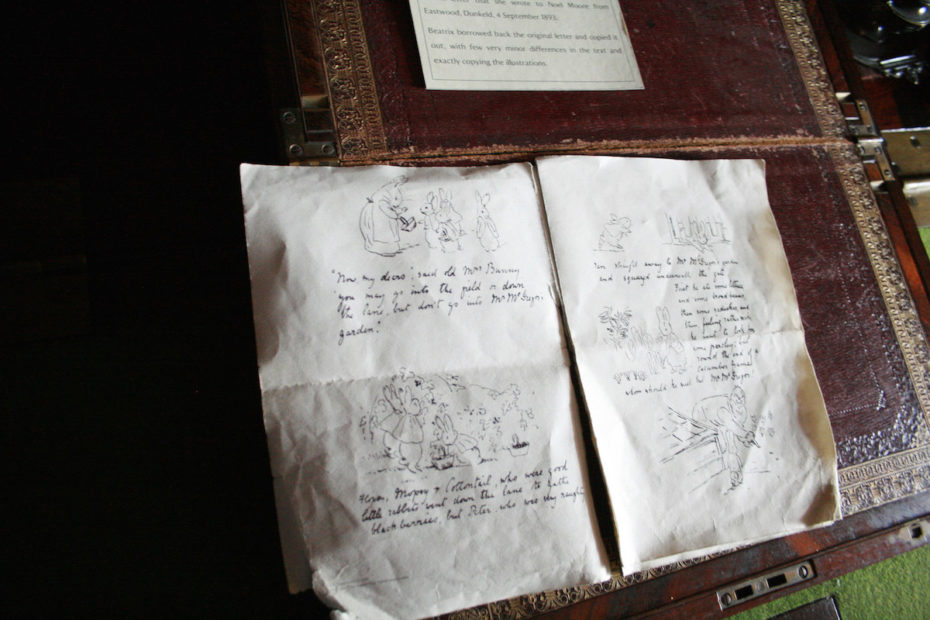 that she wrote to Noel Moore from
Eastwood, Dunkeld, 4 September 1893.
Beatrix borrowed back the original letter and copied it
out, with few very minor differences in the text and
exactly copying the illustrations.
"Now my dears", said old Mrs Bunny
"you may go into the field or down
the lane, but don't go into Mr McGregor's
garden."
Flopsy, Mopsy & Cottontail, who were good
little rabbits went down the lane to gather
blackberries, but Peter, who was very naughty
ran straight away to Mr McGregor's garden
and squeezed underneath the gate.
First he ate some lettuce,
and some broad beans,
then some radishes, and
then, feeling rather sick,
he went to look for
some parsley; but
round the end of a
cucumber frame
whom should he meet but Mr McGregor!